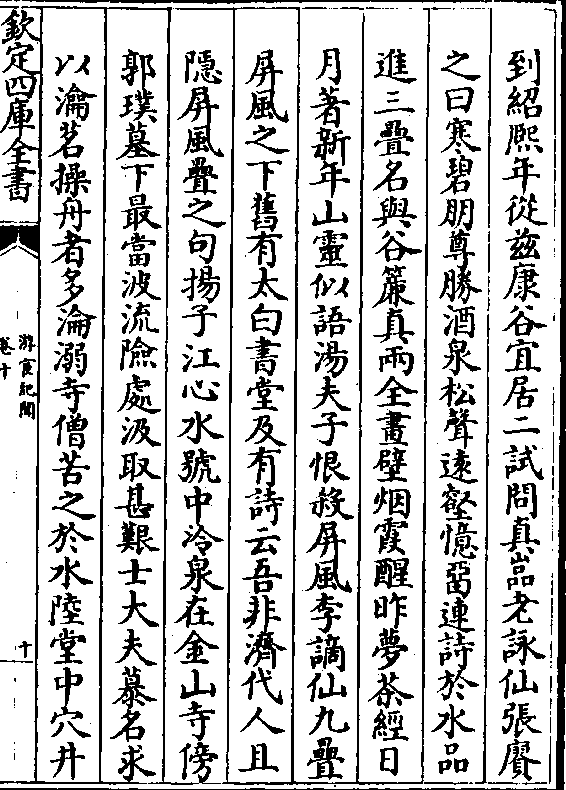 到紹熙年從兹康谷宜居二試問真嵓老詠仙張賡
之曰寒碧朋尊勝酒泉松聲逺壑憶留連詩於水品
進三疊名與谷簾真兩全畫壁烟霞醒昨夢茶經日
月著新年山靈似語湯夫子恨殺屏風李謫仙九疊
屏風之下舊有太白書堂及有詩云吾非濟代人且
隠屏風疊之句揚子江心水號中泠泉在金山寺傍
郭璞墓下最當波流險處汲取甚艱士大夫慕名求
以瀹茗操舟者多淪溺寺僧苦之於水陸堂中穴井
欽定四庫全書
游宦紀聞
卷十
十